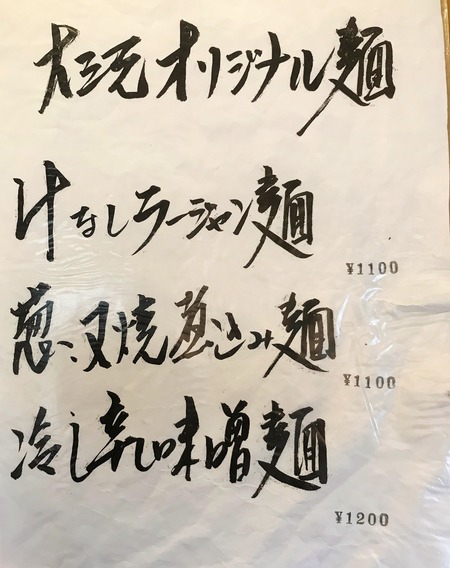 大三元オリジナル麺
汁なしラージャン麺
¥1100
葱叉焼煮込み麺
¥1100
冷し辛味噌麺
¥1200